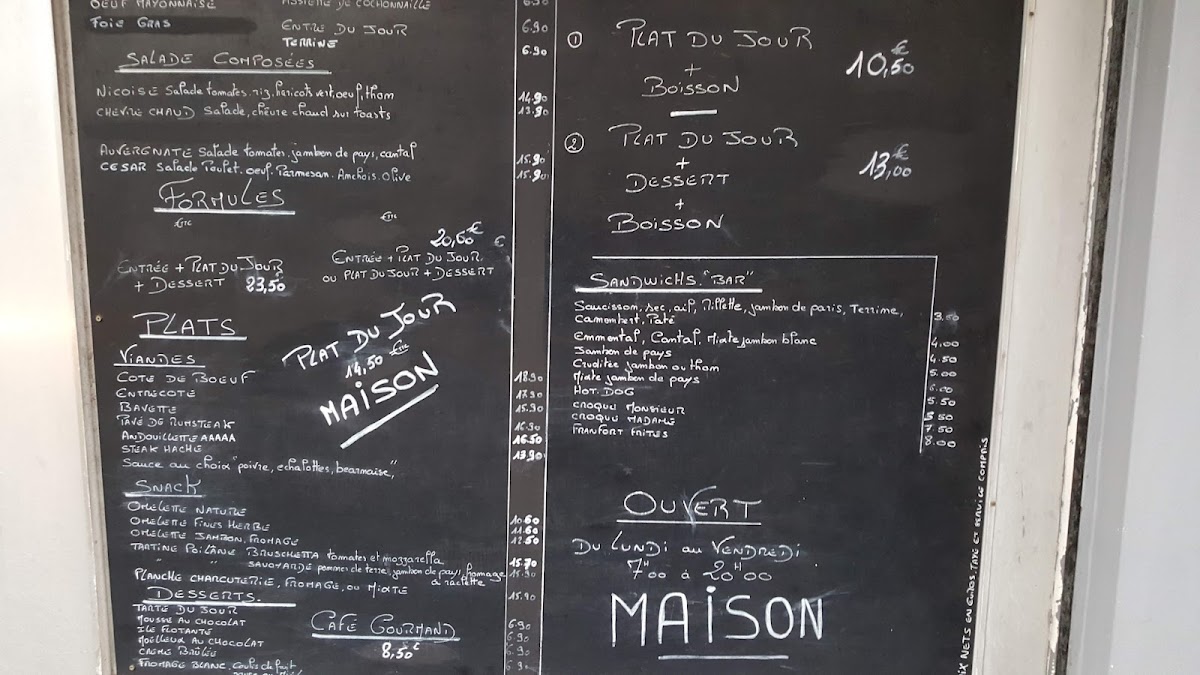 OEUF MAYONNAISE
ASSIETTE DE COCHONNAILLE 6.90
FOIE GRAS
ENTRE DU JOUR 6.90
TERRINE 6.90
SALADE COMPOSÉES
NICOISE Salade tomates, riz, haricots vert, oeuf, thom 14.90
CHEVRE CHAUD Salade, chèvre chaud sur toasts 13.90
AUVERGNATE Salade tomates, jambon de pays, cantal 15.90
CESAR Salade Poulet, oeuf, Parmesan, Anchois, Olive 15.90
FORMULES
ENTRÉE + PLAT DU JOUR
+ DESSERT 23,50
20,60€ €
ENTRÉE + PLAT DU JOUR
OU PLAT DU JOUR + DESSERT
PLATS
PLAT DU JOUR
14,50 €TTC
MAISON
VIANDES
COTE DE BOEUF 18.90
ENTRECOTE 17.90
BAVETTE 15.90
PAVÉ DE RUMSTEAK 16.90
ANDOUILLETTE AAAAA 16.50
STEAK HACHE 13.90
Sauce au choix "poivre, echalottes, bearnaise"
SNACK
OMELETTE NATURE 10.60
OMELETTE FINES HERBE 11.60
OMELETTE JAMBON, FROMAGE 12.50
TARTINE POILÂNE BRUSCHETTA tomates et mozzarella 15.70
" " SAVOYARDE pommes de terre, jambon de pays, fromage à raclette 15.90
PLANCHE CHARCUTERIE, FROMAGE, OU MIXTE 15.90
DESSERTS
TARTE DU JOUR 6.90
MOUSSE AU CHOCOLAT 6.90
ILE FLOTANTE 6.90
MOËLLEUX AU CHOCOLAT
CRÈME BRÛLÉE
FROMAGE BLANC, Coulis de fruit,
CAFÉ GOURMAND
8,50€
① PLAT DU JOUR
+
BOISSON
10,50€
② PLAT DU JOUR
+
DESSERT
+
BOISSON
13,00€
SANDWICHS "BAR"
Saucisson, sec, ail, Rillette, jambon de paris, Terrine,
Camembert, Paté
Emmental, Cantal, Mixte jambon blanc 4.00
Jambon de pays 4.50
Crudités jambon ou thom 5.00
Mixte jambon de pays 6.00
HOT. DOG 5.50
CROQUE MONSIEUR
CROQUE MADAME 7.50
FRANFORT FRITES 8.00
OUVERT
DU LUNDI au VENDREDI
7H00 à 20H00
MAISON
IX NETS EN EUROS, TAXE ET SERVICE COMPRIS